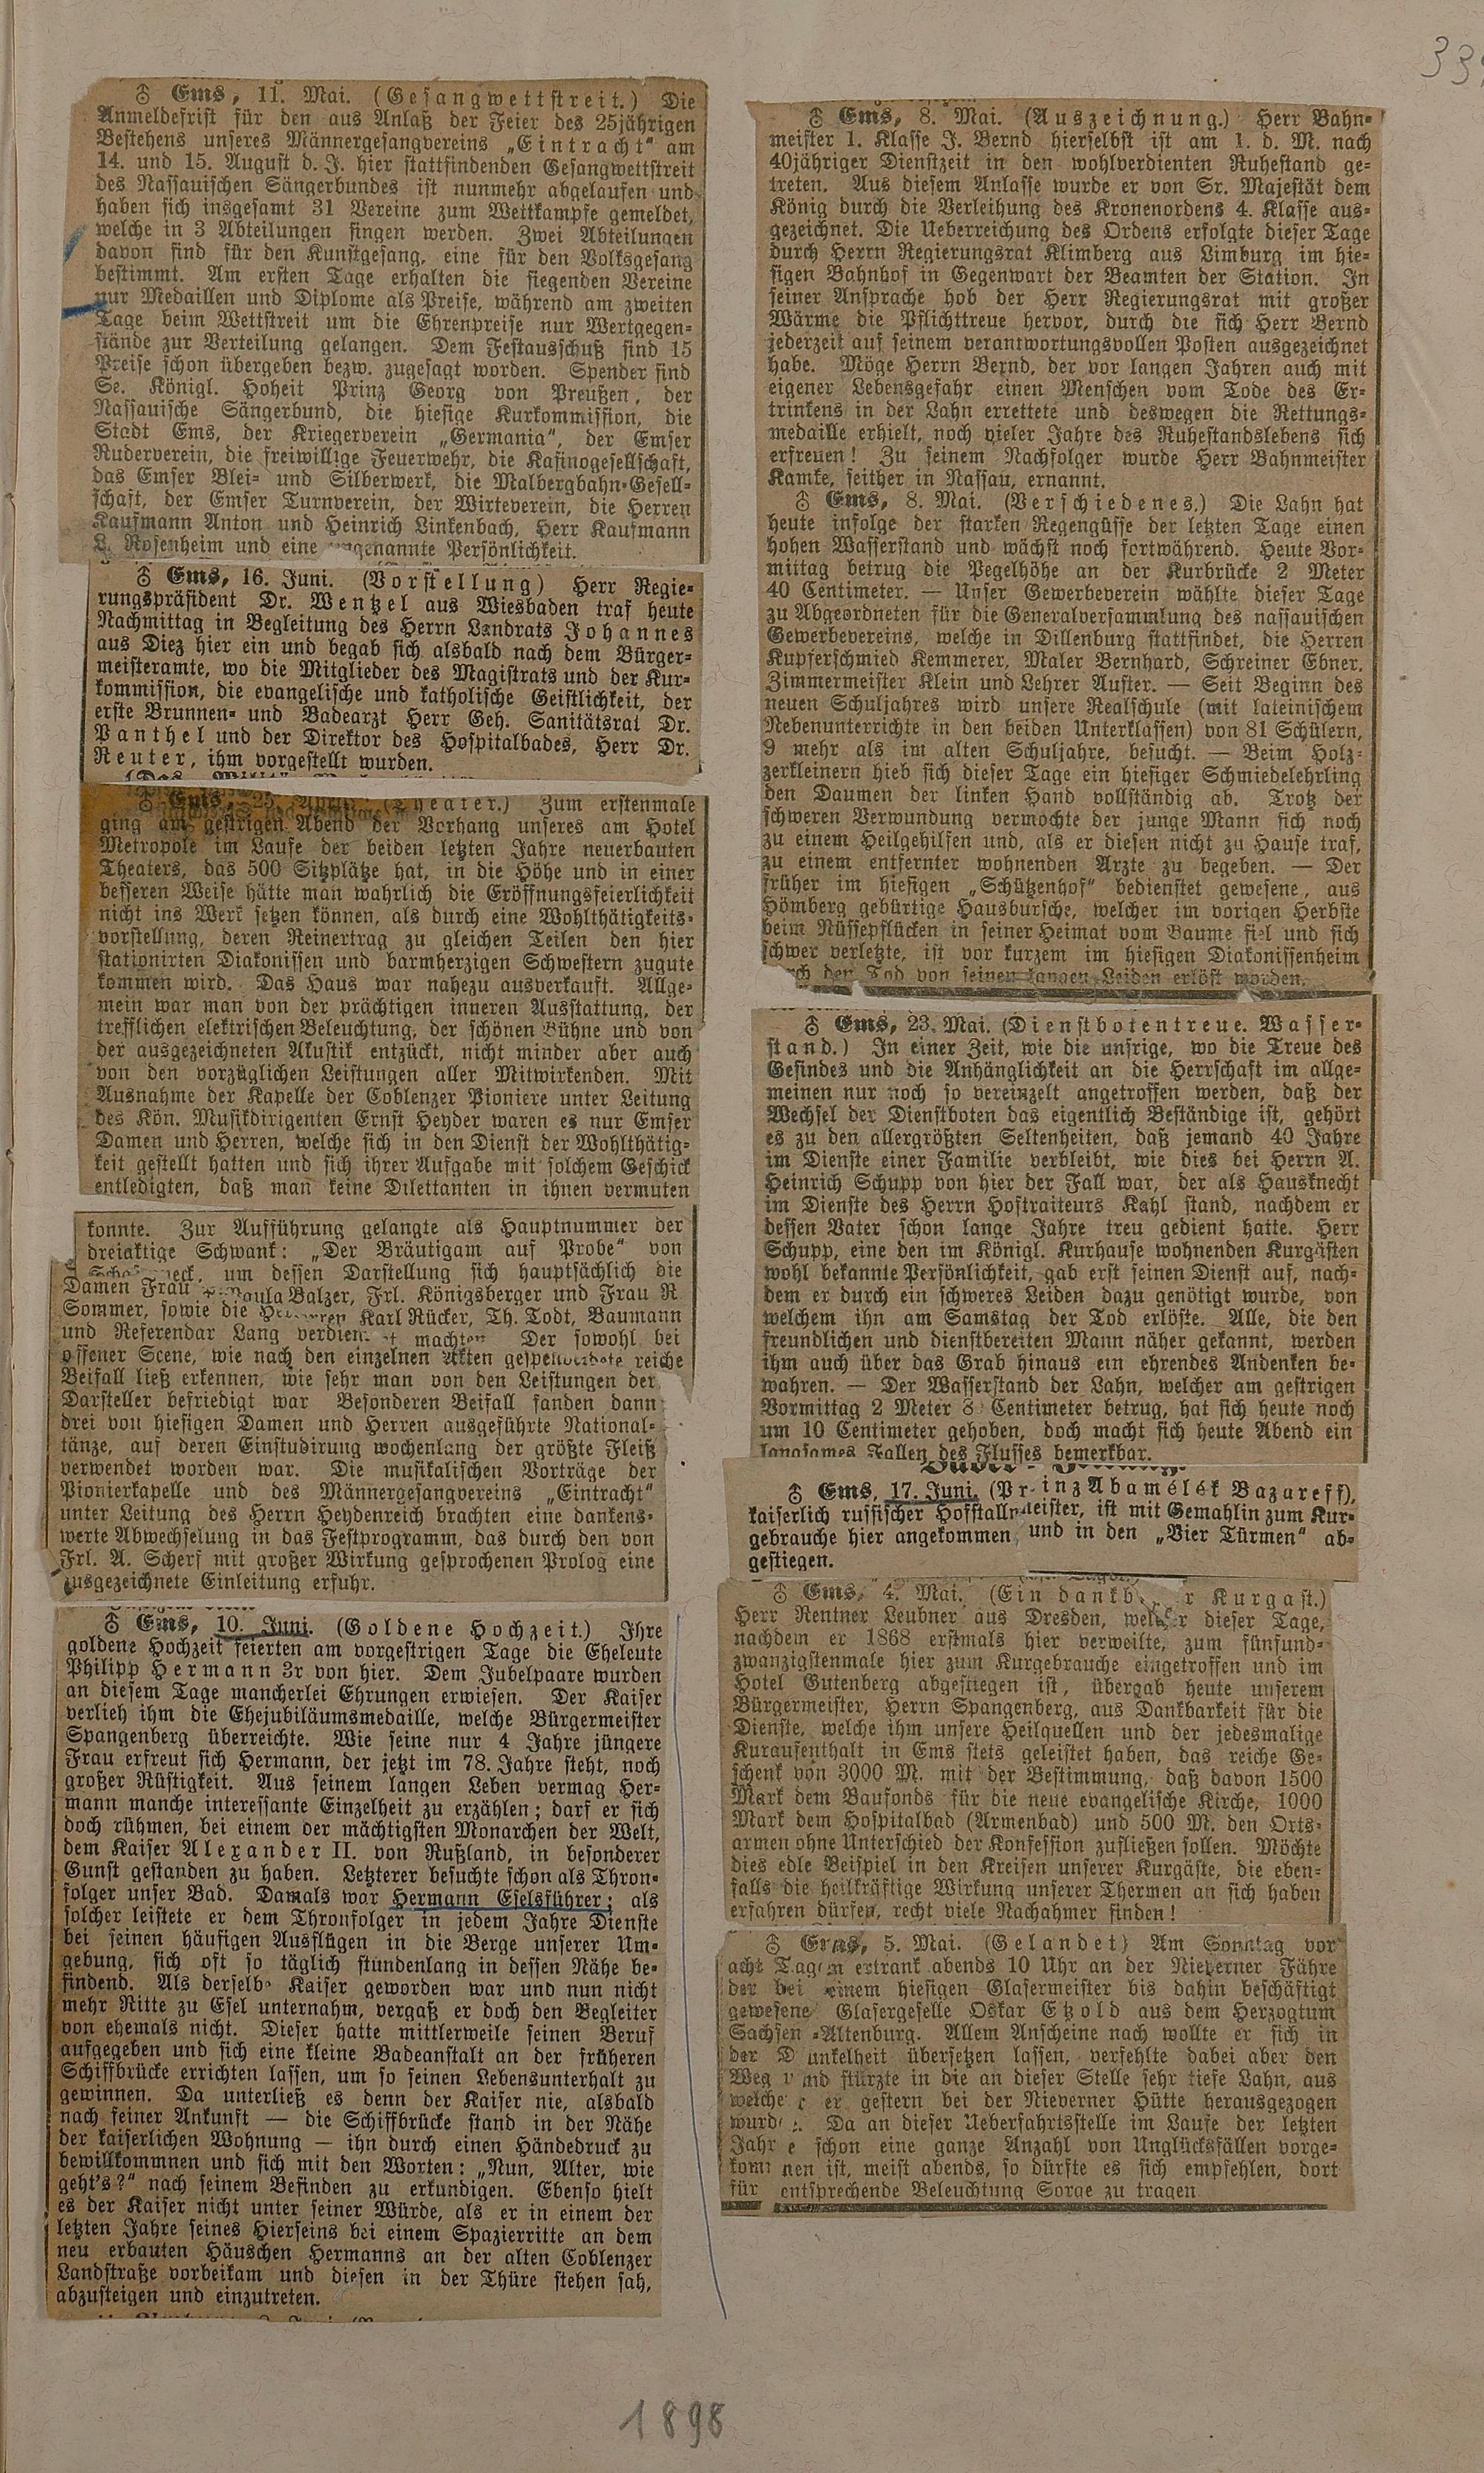 ♁ Ems, 11. Mai. (Gesangwettstreit.) Die
Anmeldefrist für den aus Anlaß der Feier des 25jährigen
Bestehens unseres Männergesangvereins „Eintracht“ am
14. und 15. August d. J. hier stattfindenden Gesangwettstreit
des Nassauischen Sängerbundes ist nunmehr abgelaufen und
haben sich insgesamt 31 Vereine zum Wettkampfe gemeldet,
welche in 3 Abteilungen singen werden. Zwei Abteilungen
davon sind für den Kunstgesang, eine für den Volksgesang
bestimmt. Am ersten Tage erhalten die siegenden Vereine
nur Medaillen und Diplome als Preise, während am zweiten
Tage beim Wettstreit um die Ehrenpreise nur Wertgegen-
stände zur Verteilung gelangen. Dem Festausschuß sind 15
Preise schon übergeben bezw. zugesagt worden. Spender sind
Se. Königl. Hoheit Prinz Georg von Preußen, der
Nassauische Sängerbund, die hiesige Kurkommission, die
Stadt Ems, der Kriegerverein „Germania“, der Emser
Ruderverein, die freiwillige Feuerwehr, die Kasinogesellschaft,
das Emser Blei- und Silberwerk, die Malbergbahn-Gesell-
schaft, der Emser Turnverein, der Wirteverein, die Herren
Kaufmann Anton und Heinrich Linkenbach, Herr Kaufmann
L. Rosenheim und eine ungenannte Persönlichkeit.
♁ Ems, 16. Juni. (Vorstellung) Herr Regie-
rungspräsident Dr. Wentzel aus Wiesbaden traf heute
Nachmittag in Begleitung des Herrn Landrats Johannes
aus Diez hier ein und begab sich alsbald nach dem Bürger-
meisteramte, wo die Mitglieder des Magistrats und der Kur-
kommission, die evangelische und katholische Geistlichkeit, der
erste Brunnen- und Badearzt Herr Geh. Sanitätsrat Dr.
Panthel und der Direktor des Hospitalbades, Herr Dr.
Reuter, ihm vorgestellt wurden.
♁ Ems, 25. April. (Theater.) Zum erstenmale
ging am gestrigen Abend der Vorhang unseres am Hotel
Metropole im Laufe der beiden letzten Jahre neuerbauten
Theaters, das 500 Sitzplätze hat, in die Höhe und in einer
besseren Weise hätte man wahrlich die Eröffnungsfeierlichkeit
nicht ins Werk setzen können, als durch eine Wohlthätigkeits-
vorstellung, deren Reinertrag zu gleichen Teilen den hier
stationirten Diakonissen und barmherzigen Schwestern zugute
kommen wird. Das Haus war nahezu ausverkauft. Allge-
mein war man von der prächtigen inneren Ausstattung, der
trefflichen elektrischen Beleuchtung, der schönen Bühne und von
der ausgezeichneten Akustik entzückt, nicht minder aber auch
von den vorzüglichen Leistungen aller Mitwirkenden. Mit
Ausnahme der Kapelle der Coblenzer Pioniere unter Leitung
des Kön. Musikdirigenten Ernst Heyder waren es nur Emser
Damen und Herren, welche sich in den Dienst der Wohlthätig-
keit gestellt hatten und sich ihrer Aufgabe mit solchem Geschick
entledigten, daß man keine Dilettanten in ihnen vermuten
konnte. Zur Aufführung gelangte als Hauptnummer der
dreiaktige Schwank: „Der Bräutigam auf Probe“ von
um dessen Darstellung sich hauptsächlich die
Damen Frau Paula Balzer, Frl. Königsberger und Frau R.
Sommer, sowie die Herren Karl Rücker, Th. Todt, Baumann
und Referendar Lang verdient machten. Der sowohl bei
offener Scene, wie nach den einzelnen Akten gespendete reiche
Beifall ließ erkennen, wie sehr man von den Leistungen der
Darsteller befriedigt war Besonderen Beifall fanden dann
drei von hiesigen Damen und Herren ausgeführte National-
tänze, auf deren Einstudirung wochenlang der größte Fleiß
verwendet worden war. Die musikalischen Vorträge der
Pionierkapelle und des Männergesangvereins „Eintracht“
unter Leitung des Herrn Heydenreich brachten eine dankens-
werte Abwechselung in das Festprogramm, das durch den von
Frl. A. Scherf mit großer Wirkung gesprochenen Prolog eine
ausgezeichnete Einleitung erfuhr.
♁ Ems, 10. Juni. (Goldene Hochzeit.) Ihre
goldene Hochzeit feierten am vorgestrigen Tage die Eheleute
Philipp Hermann 3r von hier. Dem Jubelpaare wurden
an diesem Tage mancherlei Ehrungen erwiesen. Der Kaiser
verlieh ihm die Ehejubiläumsmedaille, welche Bürgermeister
Spangenberg überreichte. Wie seine nur 4 Jahre jüngere
Frau erfreut sich Hermann, der jetzt im 78. Jahre steht, noch
großer Rüstigkeit. Aus seinem langen Leben vermag Her-
mann manche interessante Einzelheit zu erzählen; darf er sich
doch rühmen, bei einem der mächtigsten Monarchen der Welt,
dem Kaiser Alexander II. von Rußland, in besonderer
Gunst gestanden zu haben. Letzterer besuchte schon als Thron-
folger unser Bad. Damals war Hermann Eselsführer; als
solcher leistete er dem Thronfolger in jedem Jahre Dienste
bei seinen häufigen Ausflügen in die Berge unserer Um-
gebung, sich oft so täglich stundenlang in dessen Nähe be-
findend. Als derselbe Kaiser geworden war und nun nicht
mehr Ritte zu Esel unternahm, vergaß er doch den Begleiter
von ehemals nicht. Dieser hatte mittlerweile seinen Beruf
aufgegeben und sich eine kleine Badeanstalt an der früheren
Schiffbrücke errichten lassen, um so seinen Lebensunterhalt zu
gewinnen. Da unterließ es denn der Kaiser nie, alsbald
nach seiner Ankunft — die Schiffbrücke stand in der Nähe
der kaiserlichen Wohnung — ihn durch einen Händedruck zu
bewillkommnen und sich mit den Worten: „Nun, Alter, wie
geht's?“ nach seinem Befinden zu erkundigen. Ebenso hielt
es der Kaiser nicht unter seiner Würde, als er in einem der
letzten Jahre seines Hierseins bei einem Spazierritte an dem
neu erbauten Häuschen Hermanns an der alten Coblenzer
Landstraße vorbeikam und diesen in der Thüre stehen sah,
abzusteigen und einzutreten.
♁ Ems, 8. Mai. (Auszeichnung.) Herr Bahn-
meister 1. Klasse J. Bernd hierselbst ist am 1. d. M. nach
40jähriger Dienstzeit in den wohlverdienten Ruhestand ge-
treten. Aus diesem Anlasse wurde er von Sr. Majestät dem
König durch die Verleihung des Kronenordens 4. Klasse aus-
gezeichnet. Die Ueberreichung des Ordens erfolgte dieser Tage
durch Herrn Regierungsrat Klimberg aus Limburg im hie-
sigen Bahnhof in Gegenwart der Beamten der Station. In
seiner Ansprache hob der Herr Regierungsrat mit großer
Wärme die Pflichttreue hervor, durch die sich Herr Bernd
jederzeit auf seinem verantwortungsvollen Posten ausgezeichnet
habe. Möge Herrn Bernd, der vor langen Jahren auch mit
eigener Lebensgefahr einen Menschen vom Tode des Er-
trinkens in der Lahn errettete und deswegen die Rettungs-
medaille erhielt, noch vieler Jahre des Ruhestandslebens sich
erfreuen! Zu seinem Nachfolger wurde Herr Bahnmeister
Kamke, seither in Nassau, ernannt.
♁ Ems, 8. Mai. (Verschiedenes.) Die Lahn hat
heute infolge der starken Regengüsse der letzten Tage einen
hohen Wasserstand und wächst noch fortwährend. Heute Vor-
mittag betrug die Pegelhöhe an der Kurbrücke 2 Meter
40 Centimeter. — Unser Gewerbeverein wählte dieser Tage
zu Abgeordneten für die Generalversammlung des nassauischen
Gewerbevereins, welche in Dillenburg stattfindet, die Herren
Kupferschmied Kemmerer, Maler Bernhard, Schreiner Ebner,
Zimmermeister Klein und Lehrer Auster. — Seit Beginn des
neuen Schuljahres wird unsere Realschule (mit lateinischem
Nebenunterrichte in den beiden Unterklassen) von 81 Schülern,
9 mehr als im alten Schuljahre, besucht. — Beim Holz-
zerkleinern hieb sich dieser Tage ein hiesiger Schmiedelehrling
den Daumen der linken Hand vollständig ab. Trotz der
schweren Verwundung vermochte der junge Mann sich noch
zu einem Heilgehilfen und, als er diesen nicht zu Hause traf,
zu einem entfernter wohnenden Arzte zu begeben. — Der
früher im hiesigen „Schützenhof“ bedienstet gewesene, aus
Hömberg gebürtige Hausbursche, welcher im vorigen Herbste
beim Nüssepflücken in seiner Heimat vom Baume fiel und sich
schwer verletzte, ist vor kurzem im hiesigen Diakonissenheim
durch den Tod von seinen langen Leiden erlöst worden.
♁ Ems, 23. Mai. (Dienstbotentreue. Wasser-
stand.) In einer Zeit, wie die unsrige, wo die Treue des
Gesindes und die Anhänglichkeit an die Herrschaft im allge-
meinen nur noch so vereinzelt angetroffen werden, daß der
Wechsel der Dienstboten das eigentlich Beständige ist, gehört
es zu den allergrößten Seltenheiten, daß jemand 40 Jahre
im Dienste einer Familie verbleibt, wie dies bei Herrn A.
Heinrich Schupp von hier der Fall war, der als Hausknecht
im Dienste des Herrn Hoftraiteurs Kahl stand, nachdem er
dessen Vater schon lange Jahre treu gedient hatte. Herr
Schupp, eine den im Königl. Kurhause wohnenden Kurgästen
wohl bekannte Persönlichkeit, gab erst seinen Dienst auf, nach-
dem er durch ein schweres Leiden dazu genötigt wurde, von
welchem ihn am Samstag der Tod erlöste. Alle, die den
freundlichen und dienstbereiten Mann näher gekannt, werden
ihm auch über das Grab hinaus ein ehrendes Andenken be-
wahren. — Der Wasserstand der Lahn, welcher am gestrigen
Vormittag 2 Meter 8 Centimeter betrug, hat sich heute noch
um 10 Centimeter gehoben, doch macht sich heute Abend ein
langsames Fallen des Flusses bemerkbar.
♁ Ems, 17. Juni. (Prinz Abamélék Bazareff),
kaiserlich russischer Hofstallmeister, ist mit Gemahlin zum Kur-
gebrauche hier angekommen und in den „Vier Türmen“ ab-
gestiegen.
♁ Ems, 4. Mai. (Ein dankbarer Kurgast.)
Herr Rentner Leubner aus Dresden, welcher dieser Tage,
nachdem er 1868 erstmals hier verweilte, zum fünfund-
zwanzigstenmale hier zum Kurgebrauche eingetroffen und im
Hotel Gutenberg abgestiegen ist, übergab heute unserem
Bürgermeister, Herrn Spangenberg, aus Dankbarkeit für die
Dienste, welche ihm unsere Heilquellen und der jedesmalige
Kuraufenthalt in Ems stets geleistet haben, das reiche Ge-
schenk von 3000 M. mit der Bestimmung, daß davon 1500
Mark dem Baufonds für die neue evangelische Kirche, 1000
Mark dem Hospitalbad (Armenbad) und 500 M. den Orts-
armen ohne Unterschied der Konfession zufließen sollen. Möchte
dies edle Beispiel in den Kreisen unserer Kurgäste, die eben-
falls die heilkräftige Wirkung unserer Thermen an sich haben
erfahren dürfen, recht viele Nachahmer finden!
♁ Ems, 5. Mai. (Gelandet) Am Sonntag vor
acht Tagen ertrank abends 10 Uhr an der Nieverner Fähre
der bei einem hiesigen Glasermeister bis dahin beschäftigt
gewesene Glasergeselle Oskar Etzold aus dem Herzogtum
Sachsen-Altenburg. Allem Anscheine nach wollte er sich in
der Dunkelheit übersetzen lassen, verfehlte dabei aber den
Weg und stürzte in die an dieser Stelle sehr tiefe Lahn, aus
welcher er gestern bei der Nieverner Hütte herausgezogen
wurde. Da an dieser Ueberfahrtsstelle im Laufe der letzten
Jahre schon eine ganze Anzahl von Unglücksfällen vorge-
kommen ist, meist abends, so dürfte es sich empfehlen, dort
für entsprechende Beleuchtung Sorge zu tragen
1898